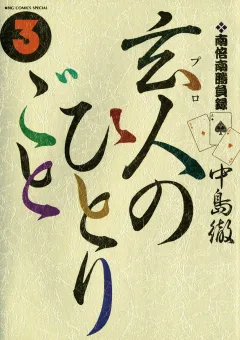 BIG COMICS SPECIAL
3
南倍南勝負録
玄人の
プロ
ひとり
ごと
中島徹